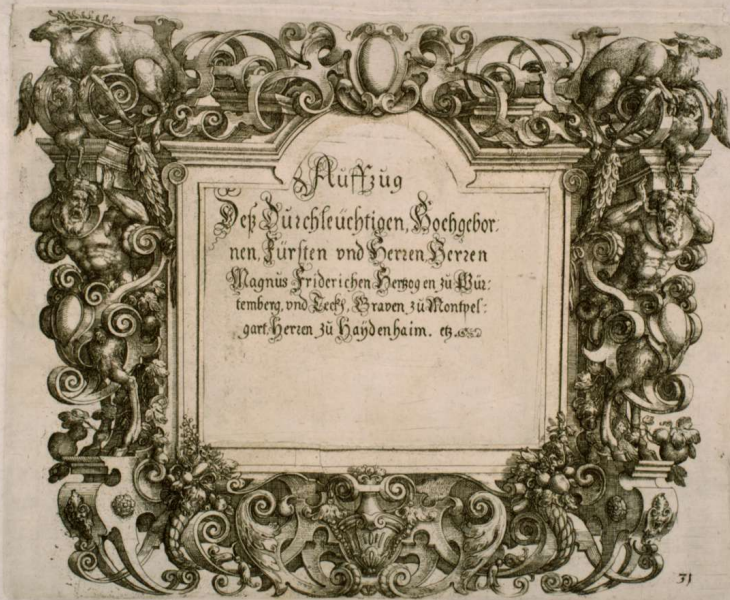 Auffzug
Deß Durchleuchtigen, Hochgebor:
nen, Fürsten vnd Herren, Herren
Magnus Friderichen, Hertzogen zu Wür:
temberg, vnd Teckh, Graven zu Montpel:
gart, Herren zu Haÿdenhaim. etz.
31